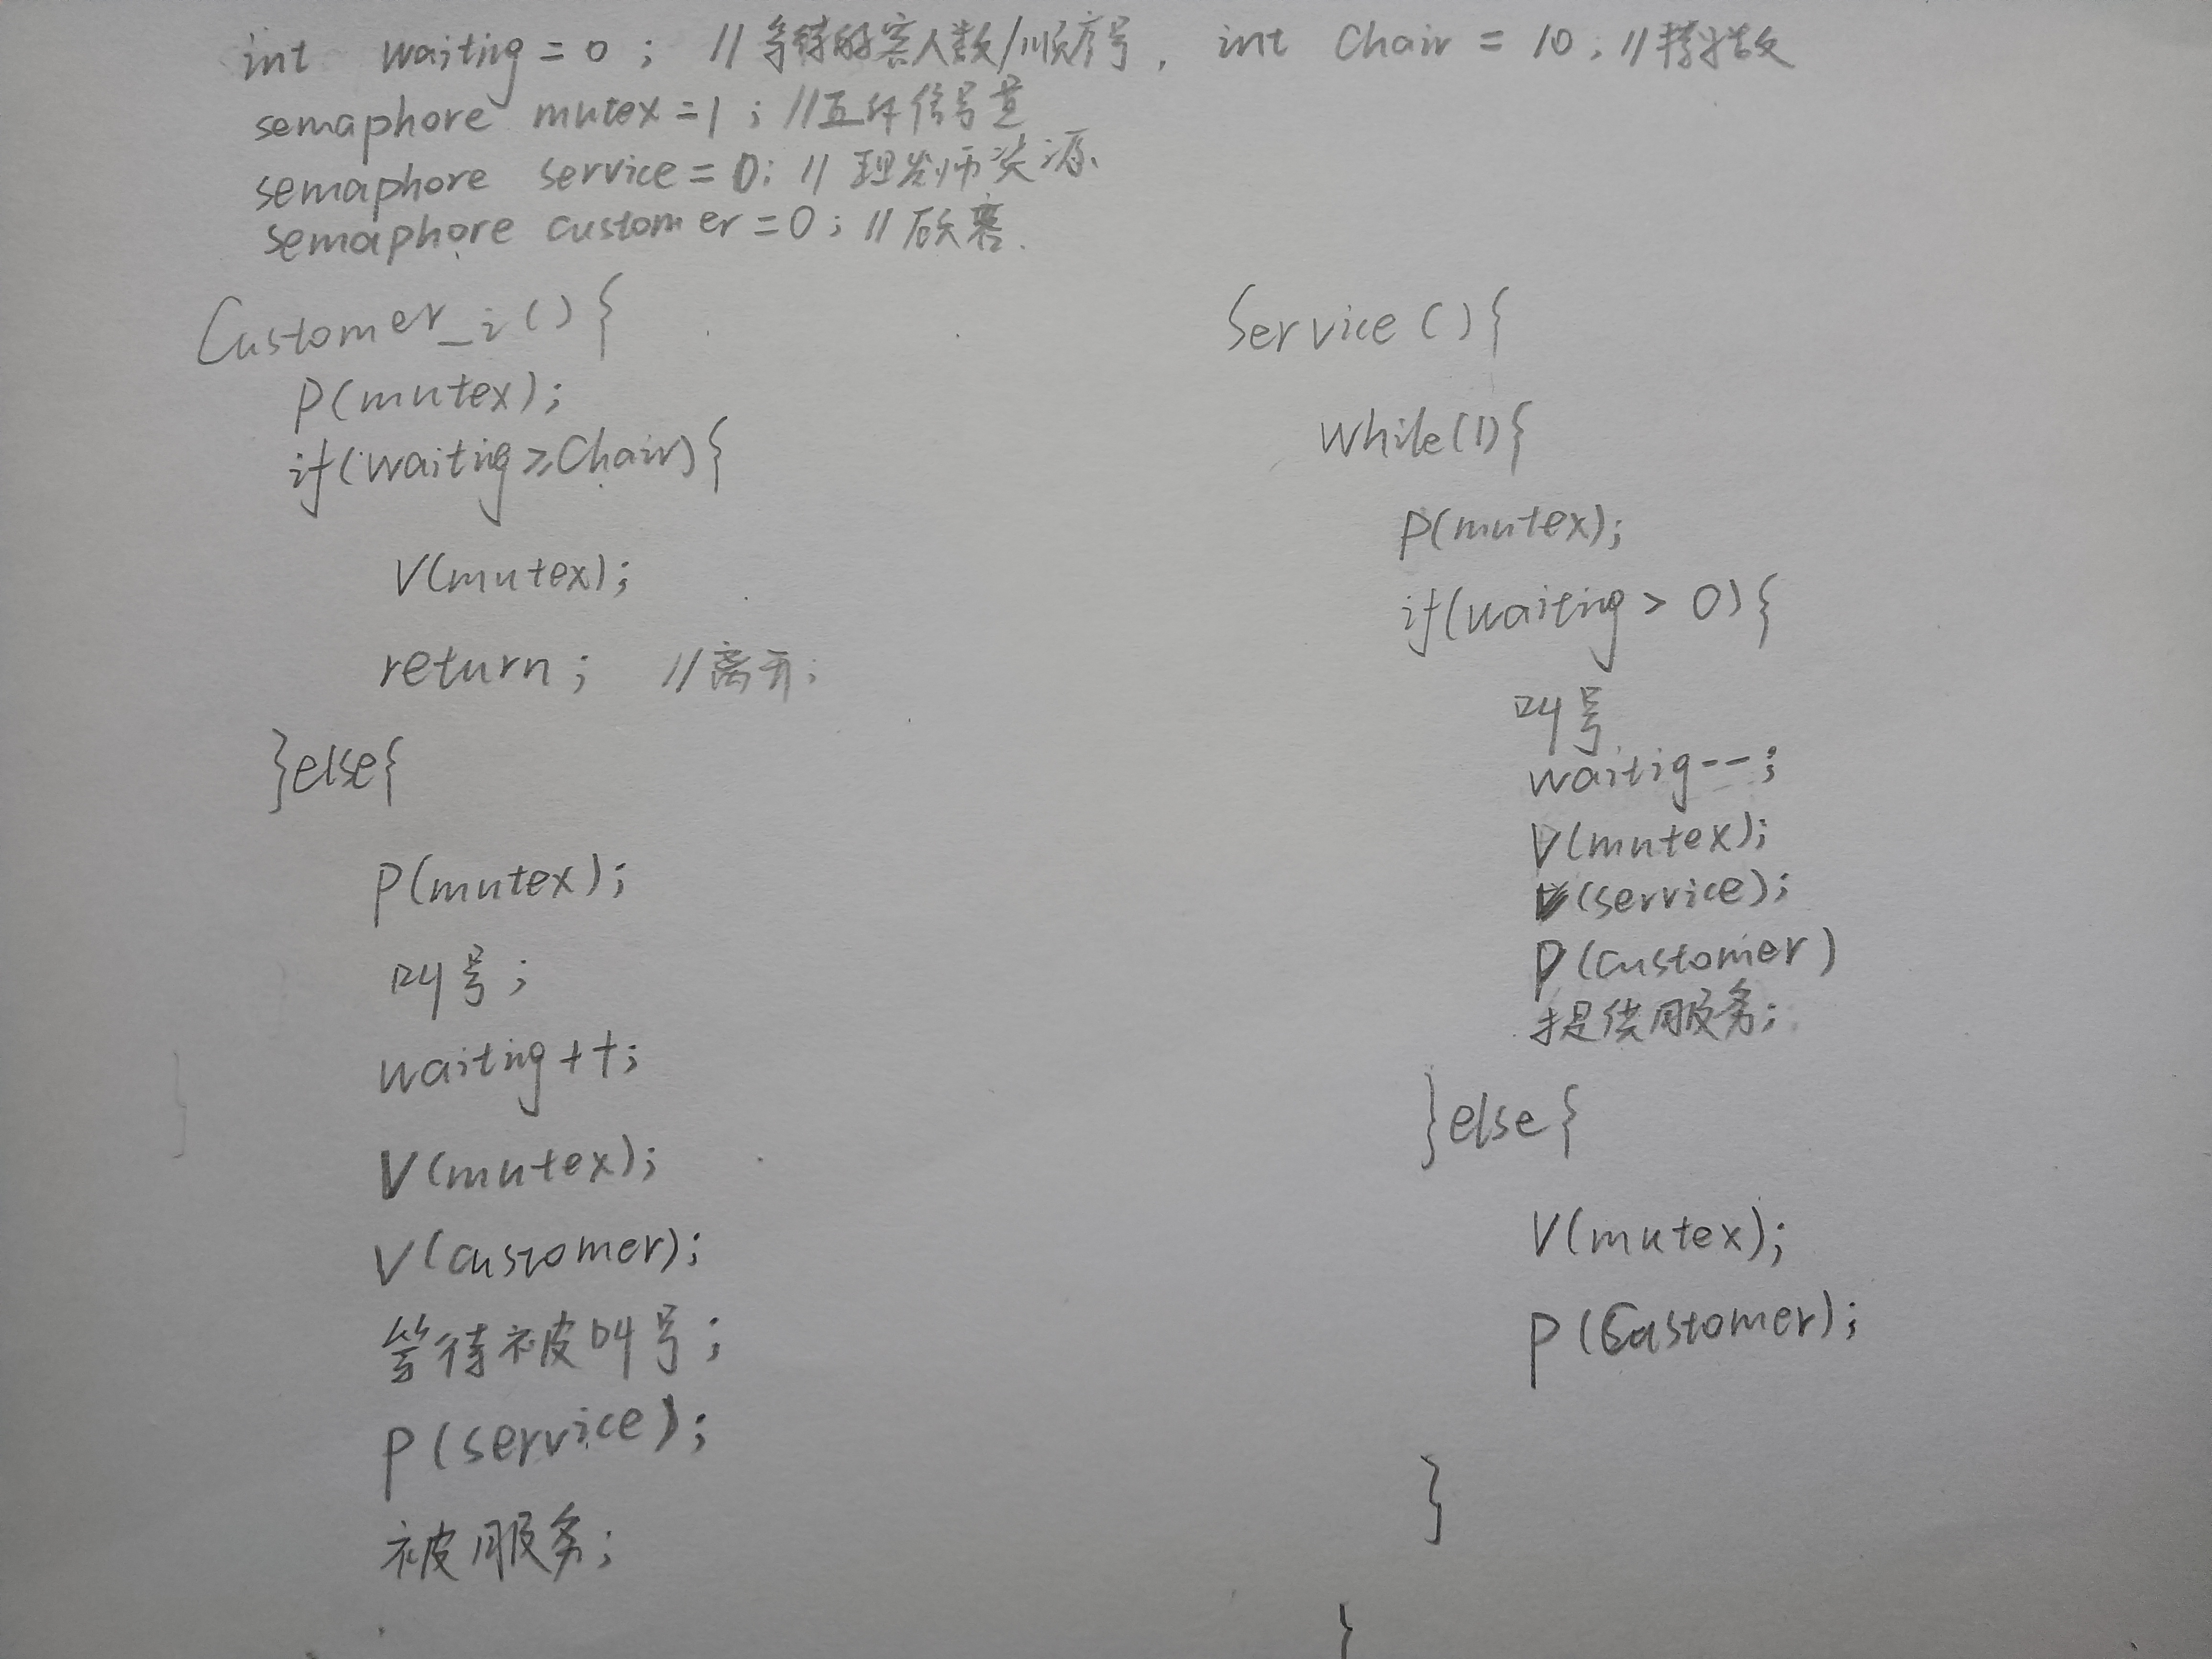 int waiting = 0 ; // 等待的客人数/顺序号, int Chair = 10 ; // 椅子数
semaphore mutex = 1 ; // 互斥信号量
semaphore service = 0 ; // 理发师资源
semaphore customer = 0 ; // 顾客.
Customer_i ( ) {
P(mutex);
if(waiting ≥ Chair) {
V(mutex);
return ; // 离开;
}else{
P(mutex);
叫号;
waiting ++;
V(mutex);
V(customer);
等待被叫号;
P(service);
被服务;
Service ( ) {
while(1){
P(mutex);
if(waiting > 0) {
叫号
waitig--;
V(mutex);
V(service);
P(customer)
提供服务;
}else {
V(mutex);
P(Customer);
}
}